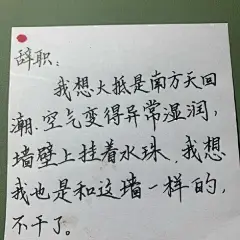 辞职：
我想大抵是南方天回
潮.空气变得异常湿润，
墙壁上挂着水珠.我想
我也是和这墙一样的，
不干了。